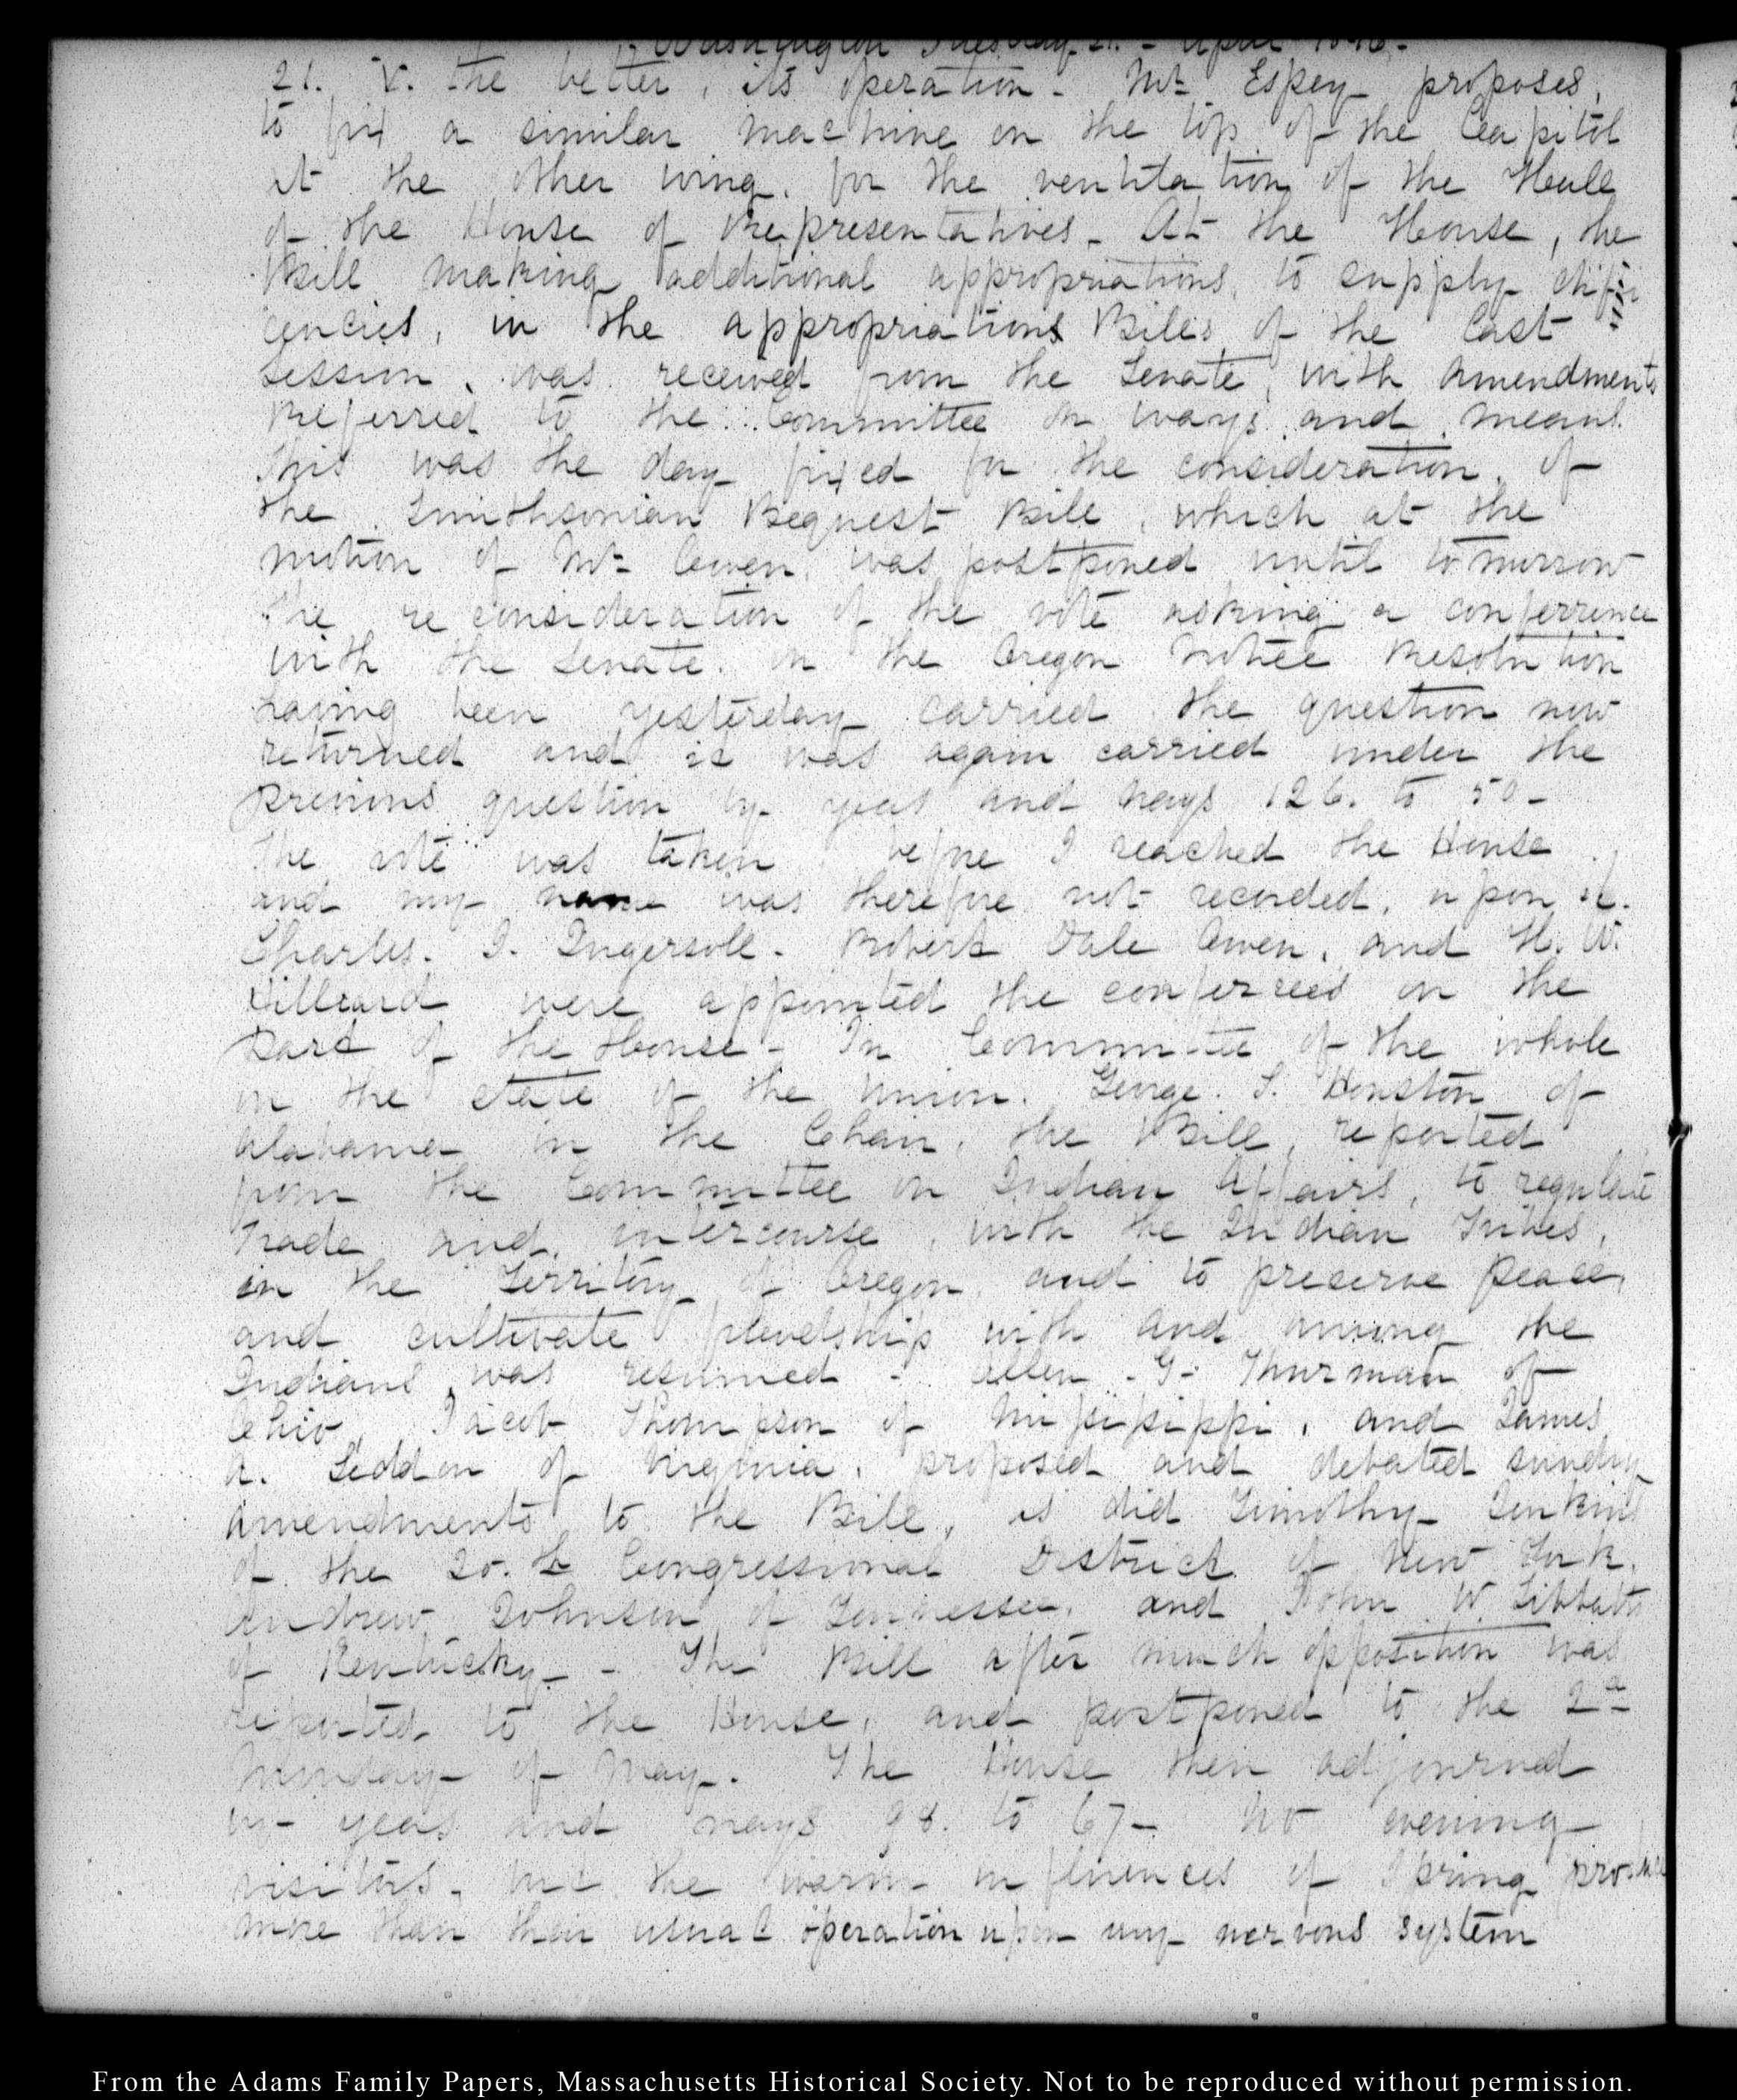 Washington Tuesday 21. - April 1846.-
21. V. the better, its operation - Mr. Espey proposes,
to fix a similar machine on the top of the Capitol
at the other wing, for the ventilation of the Hall
of the House of Representatives - At the House, the
Bill making additional appropriations, to supply defi
ciencies, in the appropriations Bills of the last
session, was received from the Senate, with amendments
Referred to the Committee on ways and means.
This was the day fixed for the consideration, of
the Smithsonian Bequest Bill, which at the
motion of Mr. Owen, was postponed until tomorrow
The reconsideration of the vote asking a conferrence
with the Senate, on the Oregon Notice Resolution
having been yesterday carried the question now
returned and it was again carried under the
previous question by yeas and nays 126. to 50 -
The vote was taken before I reached the House,
and my name was therefore not recorded, upon it.
Charles. J. Ingersoll - Robert Dale Owen, and H. W.
Hilliard were appointed the conferrees on the
Part of the House - In Committee of the whole
on the state of the Union. George. S. Houston of
Alabama in the Chair, the Bill, reported
from the Committee on Indian Affairs, to regulate
Trade and, intercourse, with the Indian Tribes,
in the Territory of Oregon, and to preserve Peace,
and cultivate friendship with and among the
Indians, was resumed - Allen - G - Thurman of
Ohio, Jacob Thompson of Mississippi, and James
A. Seddon of Virginia, proposed and debated sundry
amendments to the Bill, as did Timothy Jenkins
of the 20.th Congressional District of New York.
Andrew Johnson of Tennessee, and John W. Tibbatts
of Kentucky - - The Bill after much opposition was
reported to the House, and postponed to the 2d
Monday of May. The House then adjourned
by yeas and nays 98. to 67 - No evening
visitors - but the warm influences of Spring
more than their usual operation upon my nervous system
From the Adams Family Papers, Massachusetts Historical Society. Not to be reproduced without permission.